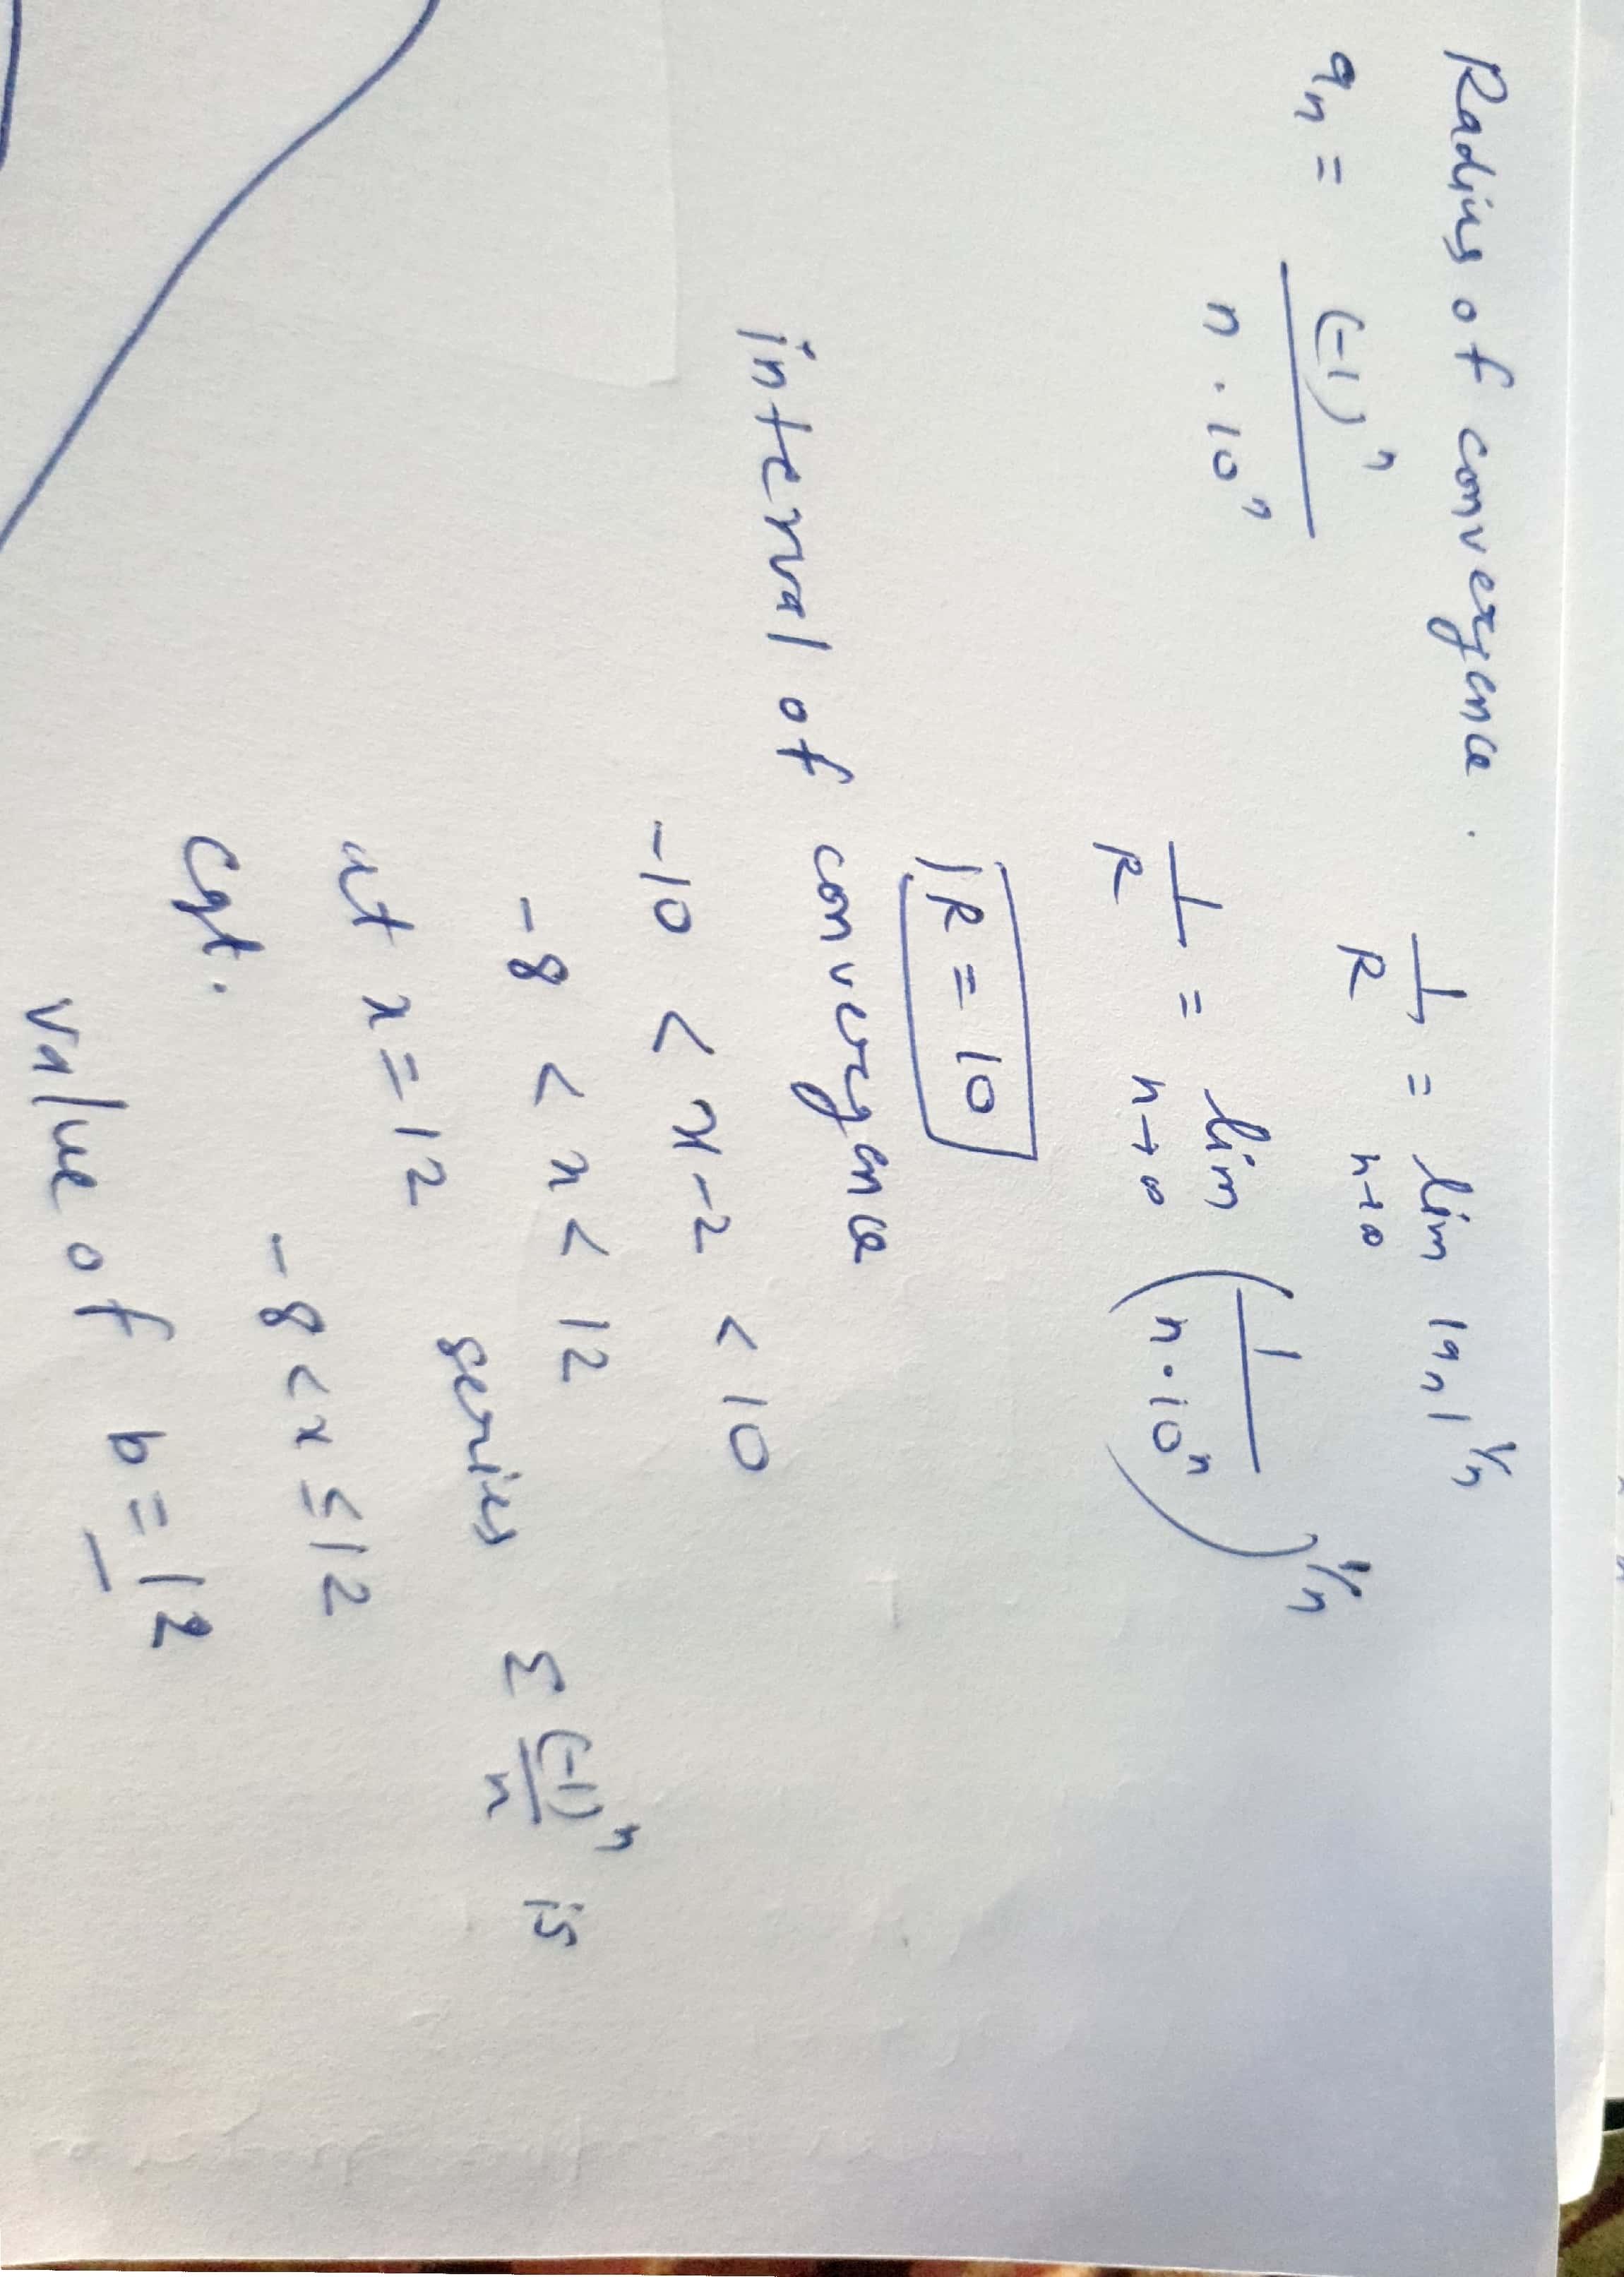 Radius of convergence.
1/R = lim n→∞ |an|^1/n
an = (-1)^n / n · 10^n
1/R = lim n→∞ (1 / n · 10^n)^1/n
|R = 10
interval of convergence
-10 < x-2 < 10
-8 < x < 12
at x = 12 series Σ (-1)^n / n is
cgt.
-8 < x ≤ 12
value of b = 12